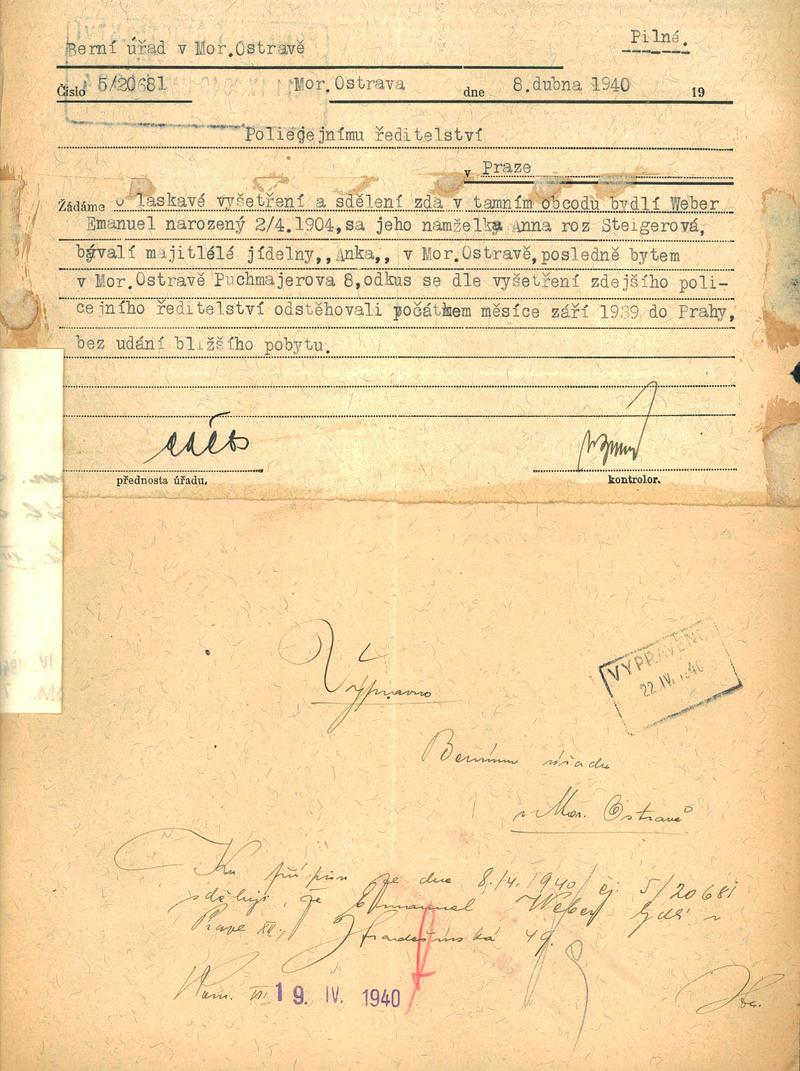 Berní úřad v Mor.Ostravě
Pilné.
Číslo 5/20681 Mor.Ostrava dne 8.dubna 1940 19
Policejnímu ředitelství
v Praze
Žádáme o laskavé vyšetření a sdělení zda v tamním obcodu bydlí Weber
Emanuel narozený 2/4.1904,sa jeho namželka Anna roz Steigerová,
bývalí majitlélé jídelny,,Anka,, v Mor.Ostravě,posledně bytem
v Mor.Ostravě Puchmajerova 8,odkus se dle vyšetření zdejšího poli-
cejního ředitelství odstěhovali počátkem měsíce září 1939 do Prahy,
bez udání bližšího pobytu.
přednosta úřadu.
kontrolor.
VYPRAVENO
22.IV.1940
Vypraveno
Bernímu úřadu
v Mor. Ostravě
Ku přípisu ze dne 8./4.1940 čj. 5/20681
sděluji, že Emanuel Weber bydlí v
Praze XII., Hradešínská 49.
19. IV. 1940